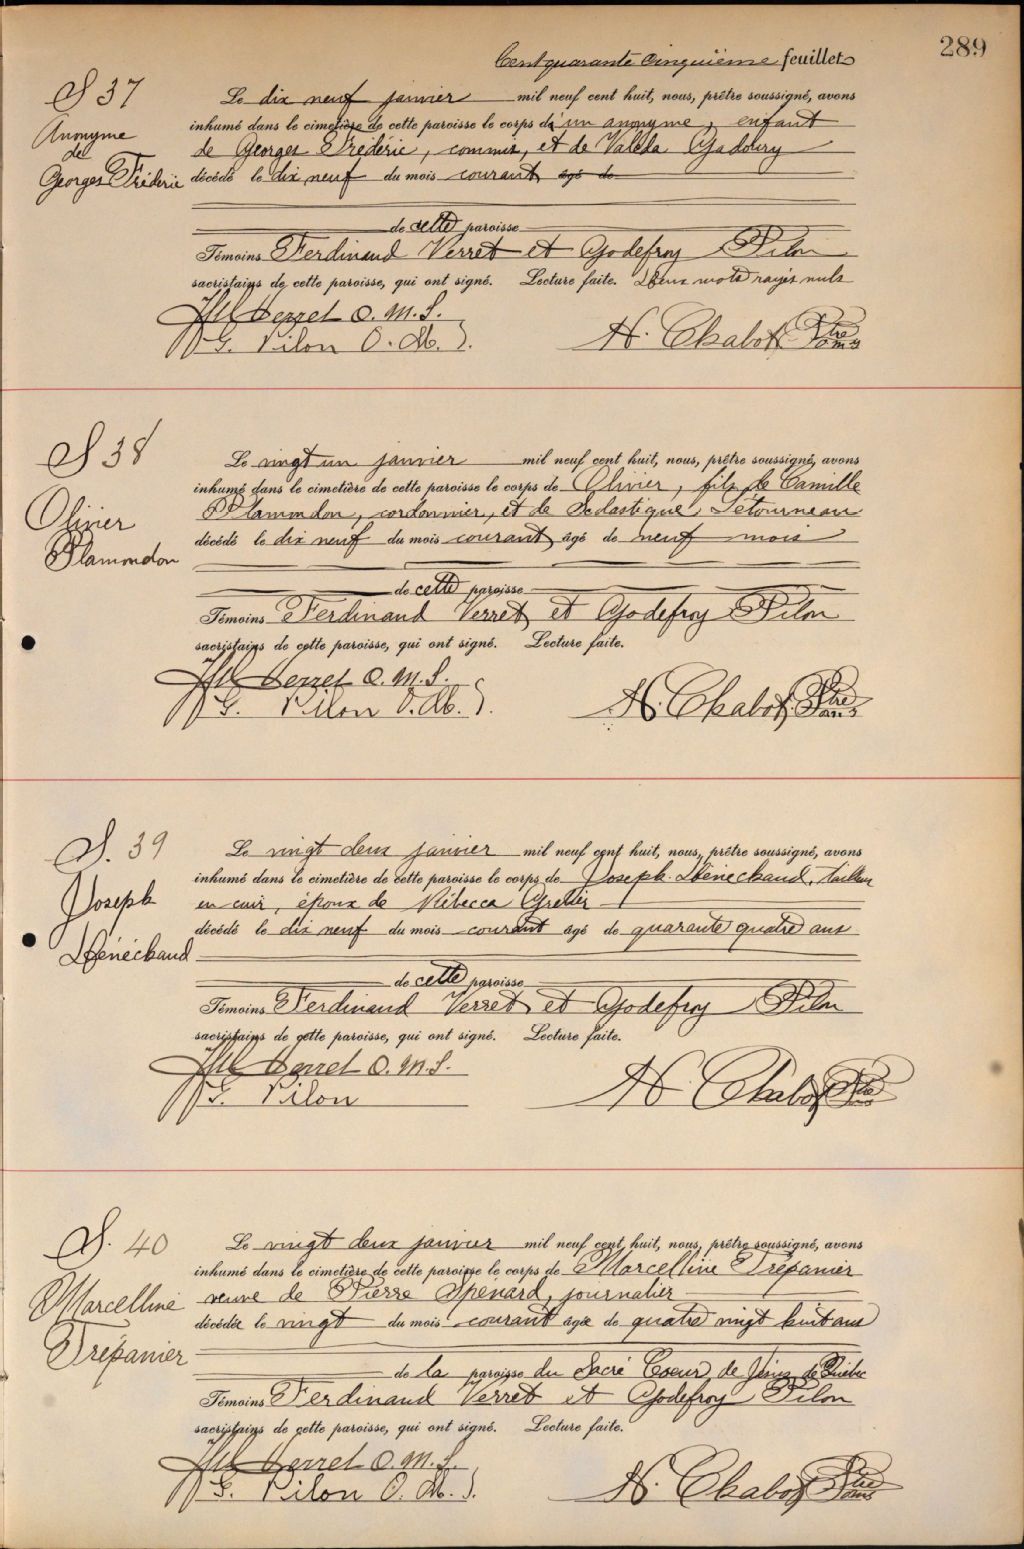 289
Cent quarante cinquième feuillet
S 37
Anonyme
de
Georges Fréderic
Le dix neuf janvier mil neuf cent huit, nous, prêtre soussigné, avons
inhumé dans le cimetière de cette paroisse le corps d'un anonyme, enfant
de Georges Fréderic, commis, et de Valéda Gadoury
décédé le dix neuf du mois courant âgé de
de cette paroisse
Témoins Ferdinand Verret et Godefroy Pilon
sacristains de cette paroisse, qui ont signé. Lecture faite. Deux mots rayés nuls
Verret O.M.S.
G. Pilon O.M.S.
H. Chabot Ptre
S 38
Olivier
Plamondon
Le vingt un janvier mil neuf cent huit, nous, prêtre soussigné, avons
inhumé dans le cimetière de cette paroisse le corps de Olivier, fils de Camille
Plamondon, cordonnier, et de Scolastique Létourneau
décédé le dix neuf du mois courant âgé de neuf mois
de cette paroisse
Témoins Ferdinand Verret et Godefroy Pilon
sacristains de cette paroisse, qui ont signé. Lecture faite.
Verret O.M.S.
G. Pilon O.M.S.
H. Chabot Ptre
S. 39
Joseph
Bénéchaud
Le vingt deux janvier mil neuf cent huit, nous, prêtre soussigné, avons
inhumé dans le cimetière de cette paroisse le corps de Joseph Bénéchaud, tailleur
en cuir, époux de Rébecca
décédé le dix neuf du mois courant âgé de quarante quatre ans
de cette paroisse
Témoins Ferdinand Verret et Godefroy Pilon
sacristains de cette paroisse, qui ont signé. Lecture faite.
Verret O.M.S.
G. Pilon
H. Chabot Ptre
S. 40
Marcelline
Trépanier
Le vingt deux janvier mil neuf cent huit, nous, prêtre soussigné, avons
inhumé dans le cimetière de cette paroisse le corps de Marcelline Trépanier
veuve de Pierre Spénard, journalier
décédée le vingt du mois courant âgée de quatre vingt huit ans
de la paroisse du Sacré Coeur de Jésus de Québec
Témoins Ferdinand Verret et Godefroy Pilon
sacristains de cette paroisse, qui ont signé. Lecture faite.
Verret O.M.S.
G. Pilon O.M.S.
H. Chabot Ptre